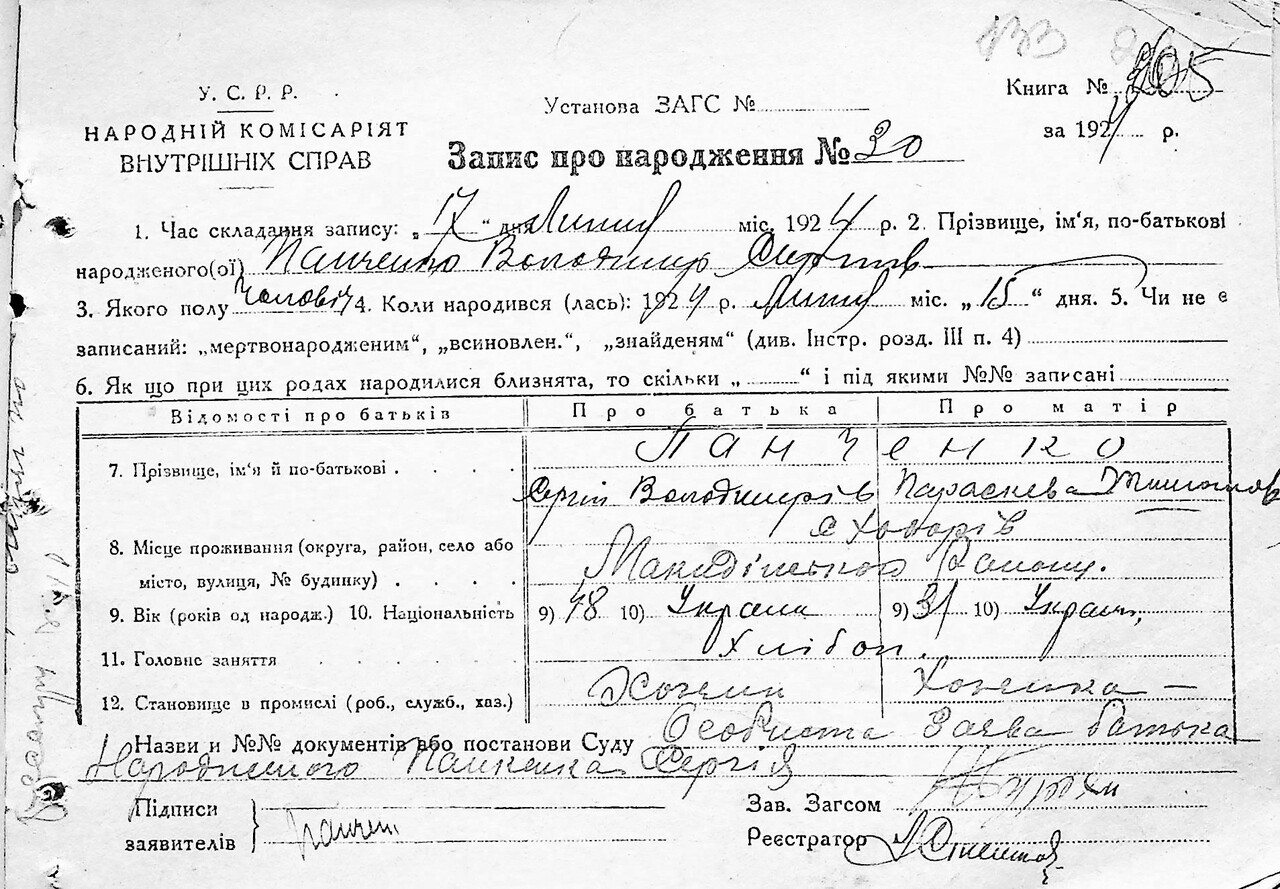 У. С. Р. Р.
НАРОДНІЙ КОМІСАРІЯТ
ВНУТРІШНІХ СПРАВ
Установа ЗАГС №
Книга №
за 1924 р.
Запис про народження № 30
1. Час складання запису: „17“ дня Липня міс. 1924 р. 2. Прізвище, ім'я, по-батькові
народженого(ої) Панченко Володимир Сергіїв
3. Якого полу Чоловіч 4. Коли народився (лась): 1924 р. Липня міс. „15“ дня. 5. Чи не є
записаний: „мертвонародженим“, „всиновлен.“, „знайденям“ (див. Інстр. розд. III п. 4)
6. Як що при цих родах народилися близнята, то скільки „ “ і під якими №№ записані
Відомості про батьків Про батька Про матір
7. Прізвище, ім'я й по-батькові . . . . Панченко
Сергій Володимирів Параскева
с Ходорів
8. Місце проживання (округа, район, село або
місто, вулиця, № будинку) . . . . Району.
9. Вік (років од народж.) 10. Національність 9) 48 10) Україн 9) 31 10) Україн,
11. Головне заняття . . . . . . Хлібоп.
12. Становище в промислі (роб., служб., хаз.)
Назви и №№ документів або постанови Суду Особиста Заява батька
Народженого Панченка Сергія
Підписи
заявителів Панчен
Зав. Загсом
Реєстратор